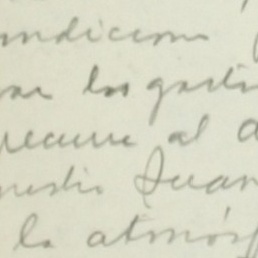 ondicion
los gasto
recurre al a
nuestro Juan
la atmós